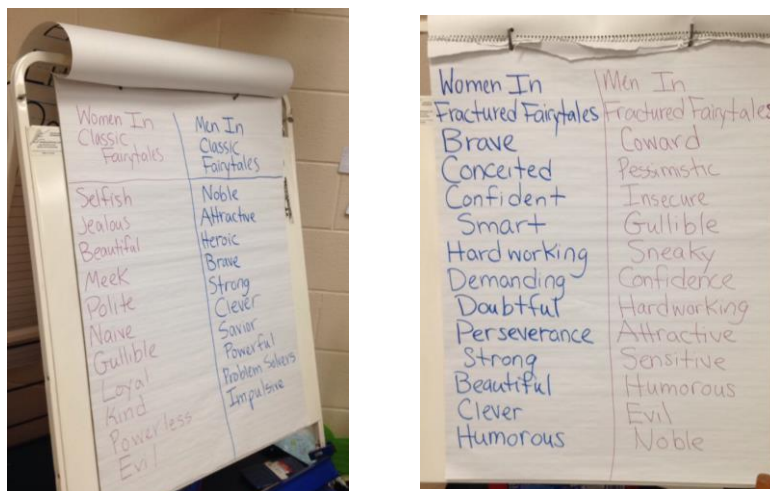 Women In
Classic
Fairytales
Selfish
Jealous
Beautiful
Meek
Polite
Naive
Gullible
Loyal
Kind
Powerless
Evil
Men In
Classic
Fairytales
Noble
Attractive
Heroic
Brave
Strong
Clever
Savior
Powerful
Problem Solvers
Impulsive
Women In
Fractured Fairytales
Brave
Conceited
Confident
Smart
Hard working
Demanding
Doubtful
Perseverance
Strong
Beautiful
Clever
Humorous
Men In
Fractured Fairytales
Coward
Pessimistic
Insecure
Gullible
Sneaky
Confidence
Hardworking
Attractive
Sensitive
Humorous
Evil
Noble